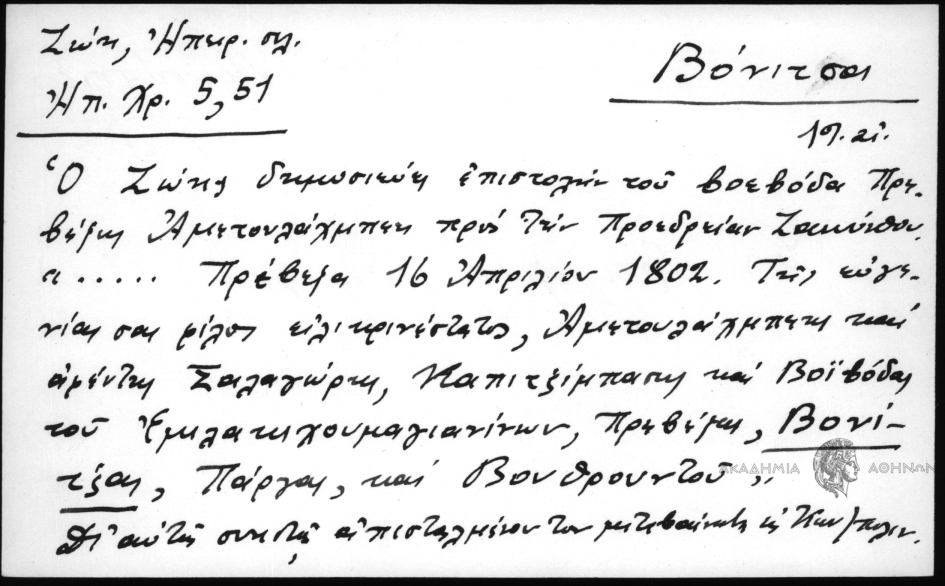 Ζώη, Ἠπειρ. σελ.
Ἠπ. Χρ. 5, 51
Βόνιτσα
19. αἰ.
Ὁ Ζώης δημοσιεύει ἐπιστολὴν τοῦ βοεβόδα Πρε-
βέζης Ἀμετουλάχμπεη πρὸς τὴν Προεδρείαν Ζακύνθου.
"..... Πρέβεζα 16 Ἀπριλίου 1802. Τῆς εὐγε-
νίας σας φίλος εἰλικρινέστατος, Ἀμετουλάχμπεης καὶ
ἀφέντης Σαλαγώρης, Καπιτζίμπασης καὶ Βοϊβόδας
τοῦ Ἐμιλατιχουμαγιανίνων, Πρεβέζης, Βονί-
τζας, Πάργας, καὶ Βουθρουντοῦ"
Δι' αὐτῆς συνιστᾷ ἀπεσταλμένον του μεταβαίνοντα εἰς Κων/πολιν.
ΑΚΑΔΗΜΙΑ ΑΘΗΝΩΝ